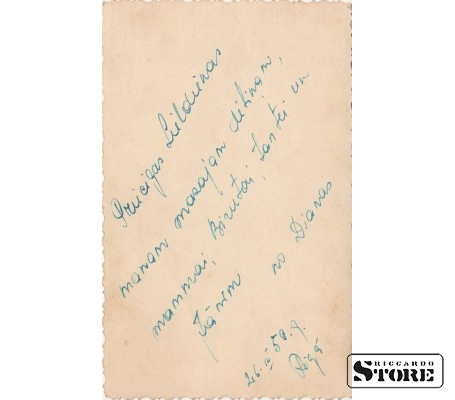 Priecīgas Lieldienas
manam mazajam dēliņam,
mammai, Birutai, tantei un
Jānim no Diānas
26. IV 59. g.
Rīgā
RICCARDO
STORE